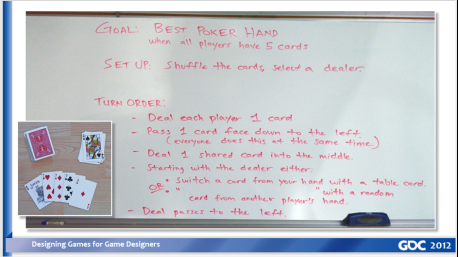 GOAL: BEST POKER HAND
when all players have 5 cards
SET UP: Shuffle the cards, select a dealer.
TURN ORDER:
- Deal each player 1 card
- Pass 1 card face down to the left.
(everyone does this at the same time.)
- Deal 1 shared card into the middle.
- Starting with the dealer either:
• Switch a card from your hand with a table card.
OR • " " with a random
card from another player's hand.
- Deal passes to the left.
Designing Games for Game Designers
GDC 2012